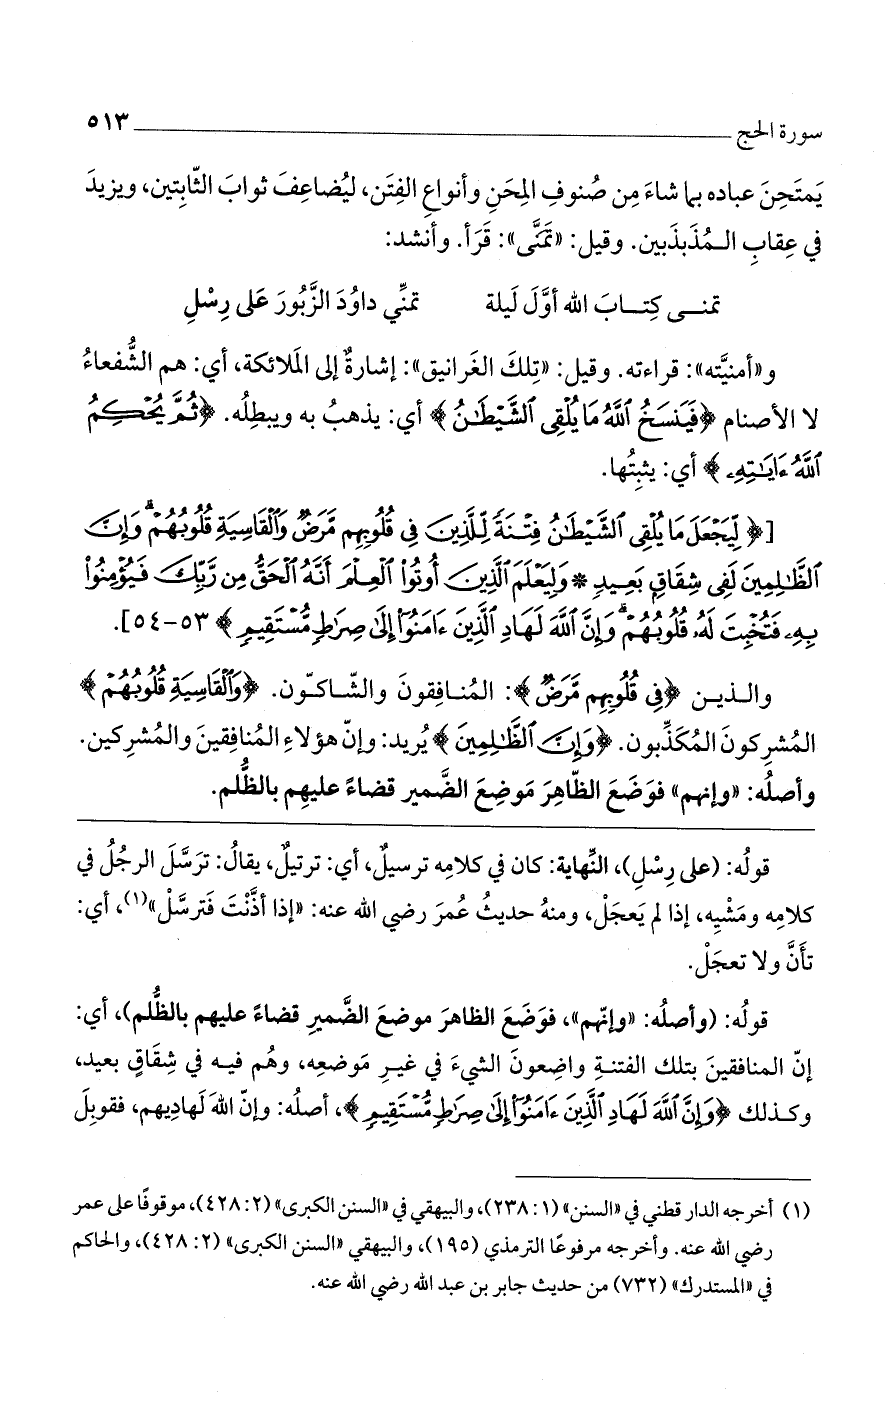 سورة الحج ــــــــــــــــــــ ٥١٣
يَمتَحِنَ عباده بما شاءَ مِن صُنوفِ المِحَنِ وأنواعِ الفِتَن، ليُضاعِفَ ثوابَ الثّابتين، ويزيدَ
في عِقابِ المُذَبذَبين. وقيل: «تَمَنَّى»: قَرَأ. وأنشد:
تمنى كِتابَ الله أوَّلَ لَيلة تمنِّي داوُدَ الزَّبُورَ عَلى رِسْلِ
و«أمنيَّته»: قراءته. وقيل: «تِلكَ الغَرانيق»: إشارةٌ إلى المَلائكة، أي: هم الشُّفعاءُ
لا الأصنام ﴿فَيَنسَخُ ٱللَّهُ مَا يُلْقِى ٱلشَّيْطَـٰنُ﴾ أي: يذهبُ به ويبطِلُه. ﴿ثُمَّ يُحْكِمُ
ٱللَّهُ ءَايَـٰتِهِۦ﴾ أي: يثبتُها.
[﴿لِّيَجْعَلَ مَا يُلْقِى ٱلشَّيْطَـٰنُ فِتْنَةً لِّلَّذِينَ فِى قُلُوبِهِم مَّرَضٌ وَٱلْقَاسِيَةِ قُلُوبُهُمْ ۗ وَإِنَّ
ٱلظَّـٰلِمِينَ لَفِى شِقَاقٍ بَعِيدٍ * وَلِيَعْلَمَ ٱلَّذِينَ أُوتُوا۟ ٱلْعِلْمَ أَنَّهُ ٱلْحَقُّ مِن رَّبِّكَ فَيُؤْمِنُوا۟
بِهِۦ فَتُخْبِتَ لَهُۥ قُلُوبُهُمْ ۗ وَإِنَّ ٱللَّهَ لَهَادِ ٱلَّذِينَ ءَامَنُوٓا۟ إِلَىٰ صِرَٰطٍ مُّسْتَقِيمٍ﴾ ٥٣-٥٤].
والذين ﴿فِى قُلُوبِهِم مَّرَضٌ﴾: المُنافِقونَ والشّاكّون. ﴿وَٱلْقَاسِيَةِ قُلُوبُهُمْ﴾
المُشرِكونَ المُكَذِّبون. ﴿وَإِنَّ ٱلظَّـٰلِمِينَ﴾ يُريد: وإنّ هؤلاءِ المُنافِقينَ والمُشرِكين.
وأصلُه: «وإنهم» فوَضَعَ الظّاهِرَ مَوضِعَ الضَّمير قضاءً عليهِم بالظُّلم.
قولُه: (على رِسْلِ)، النِّهاية: كان في كلامِه ترسيلٌ، أي: ترتيلٌ، يقالُ: ترَسَّلَ الرجُلُ في
كلامِه ومَشْيِه، إذا لم يَعجَلْ، ومنهُ حديثُ عُمرَ رضي الله عنه: «إذا أذَّنْتَ فَترسَّلْ»(١)، أي:
تأَنَّ ولا تعجَلْ.
قولُه: (وأصلُه: «وإنّهم»، فوَضَعَ الظاهرَ موضعَ الضَّميرِ قضاءً عليهم بالظُّلم)، أي:
إنّ المنافقينَ بتلك الفتنةِ واضِعونَ الشيءَ في غيرِ مَوضعِه، وهُم فيه في شِقَاقٍ بعيد،
وكذلك ﴿وَإِنَّ ٱللَّهَ لَهَادِ ٱلَّذِينَ ءَامَنُوٓا۟ إِلَىٰ صِرَٰطٍ مُّسْتَقِيمٍ﴾، أصلُه: وإنّ اللهَ لَهادِيهم، فقوبِلَ
(١) أخرجه الدار قطني في «السنن» (١: ٢٣٨)، والبيهقي في «السنن الكبرى» (٢: ٤٢٨)، موقوفًا على عمر
رضي الله عنه. وأخرجه مرفوعًا الترمذي (١٩٥)، والبيهقي «السنن الكبرى» (٢: ٤٢٨)، والحاكم
في «المستدرك» (٧٣٢) من حديث جابر بن عبد الله رضي الله عنه.